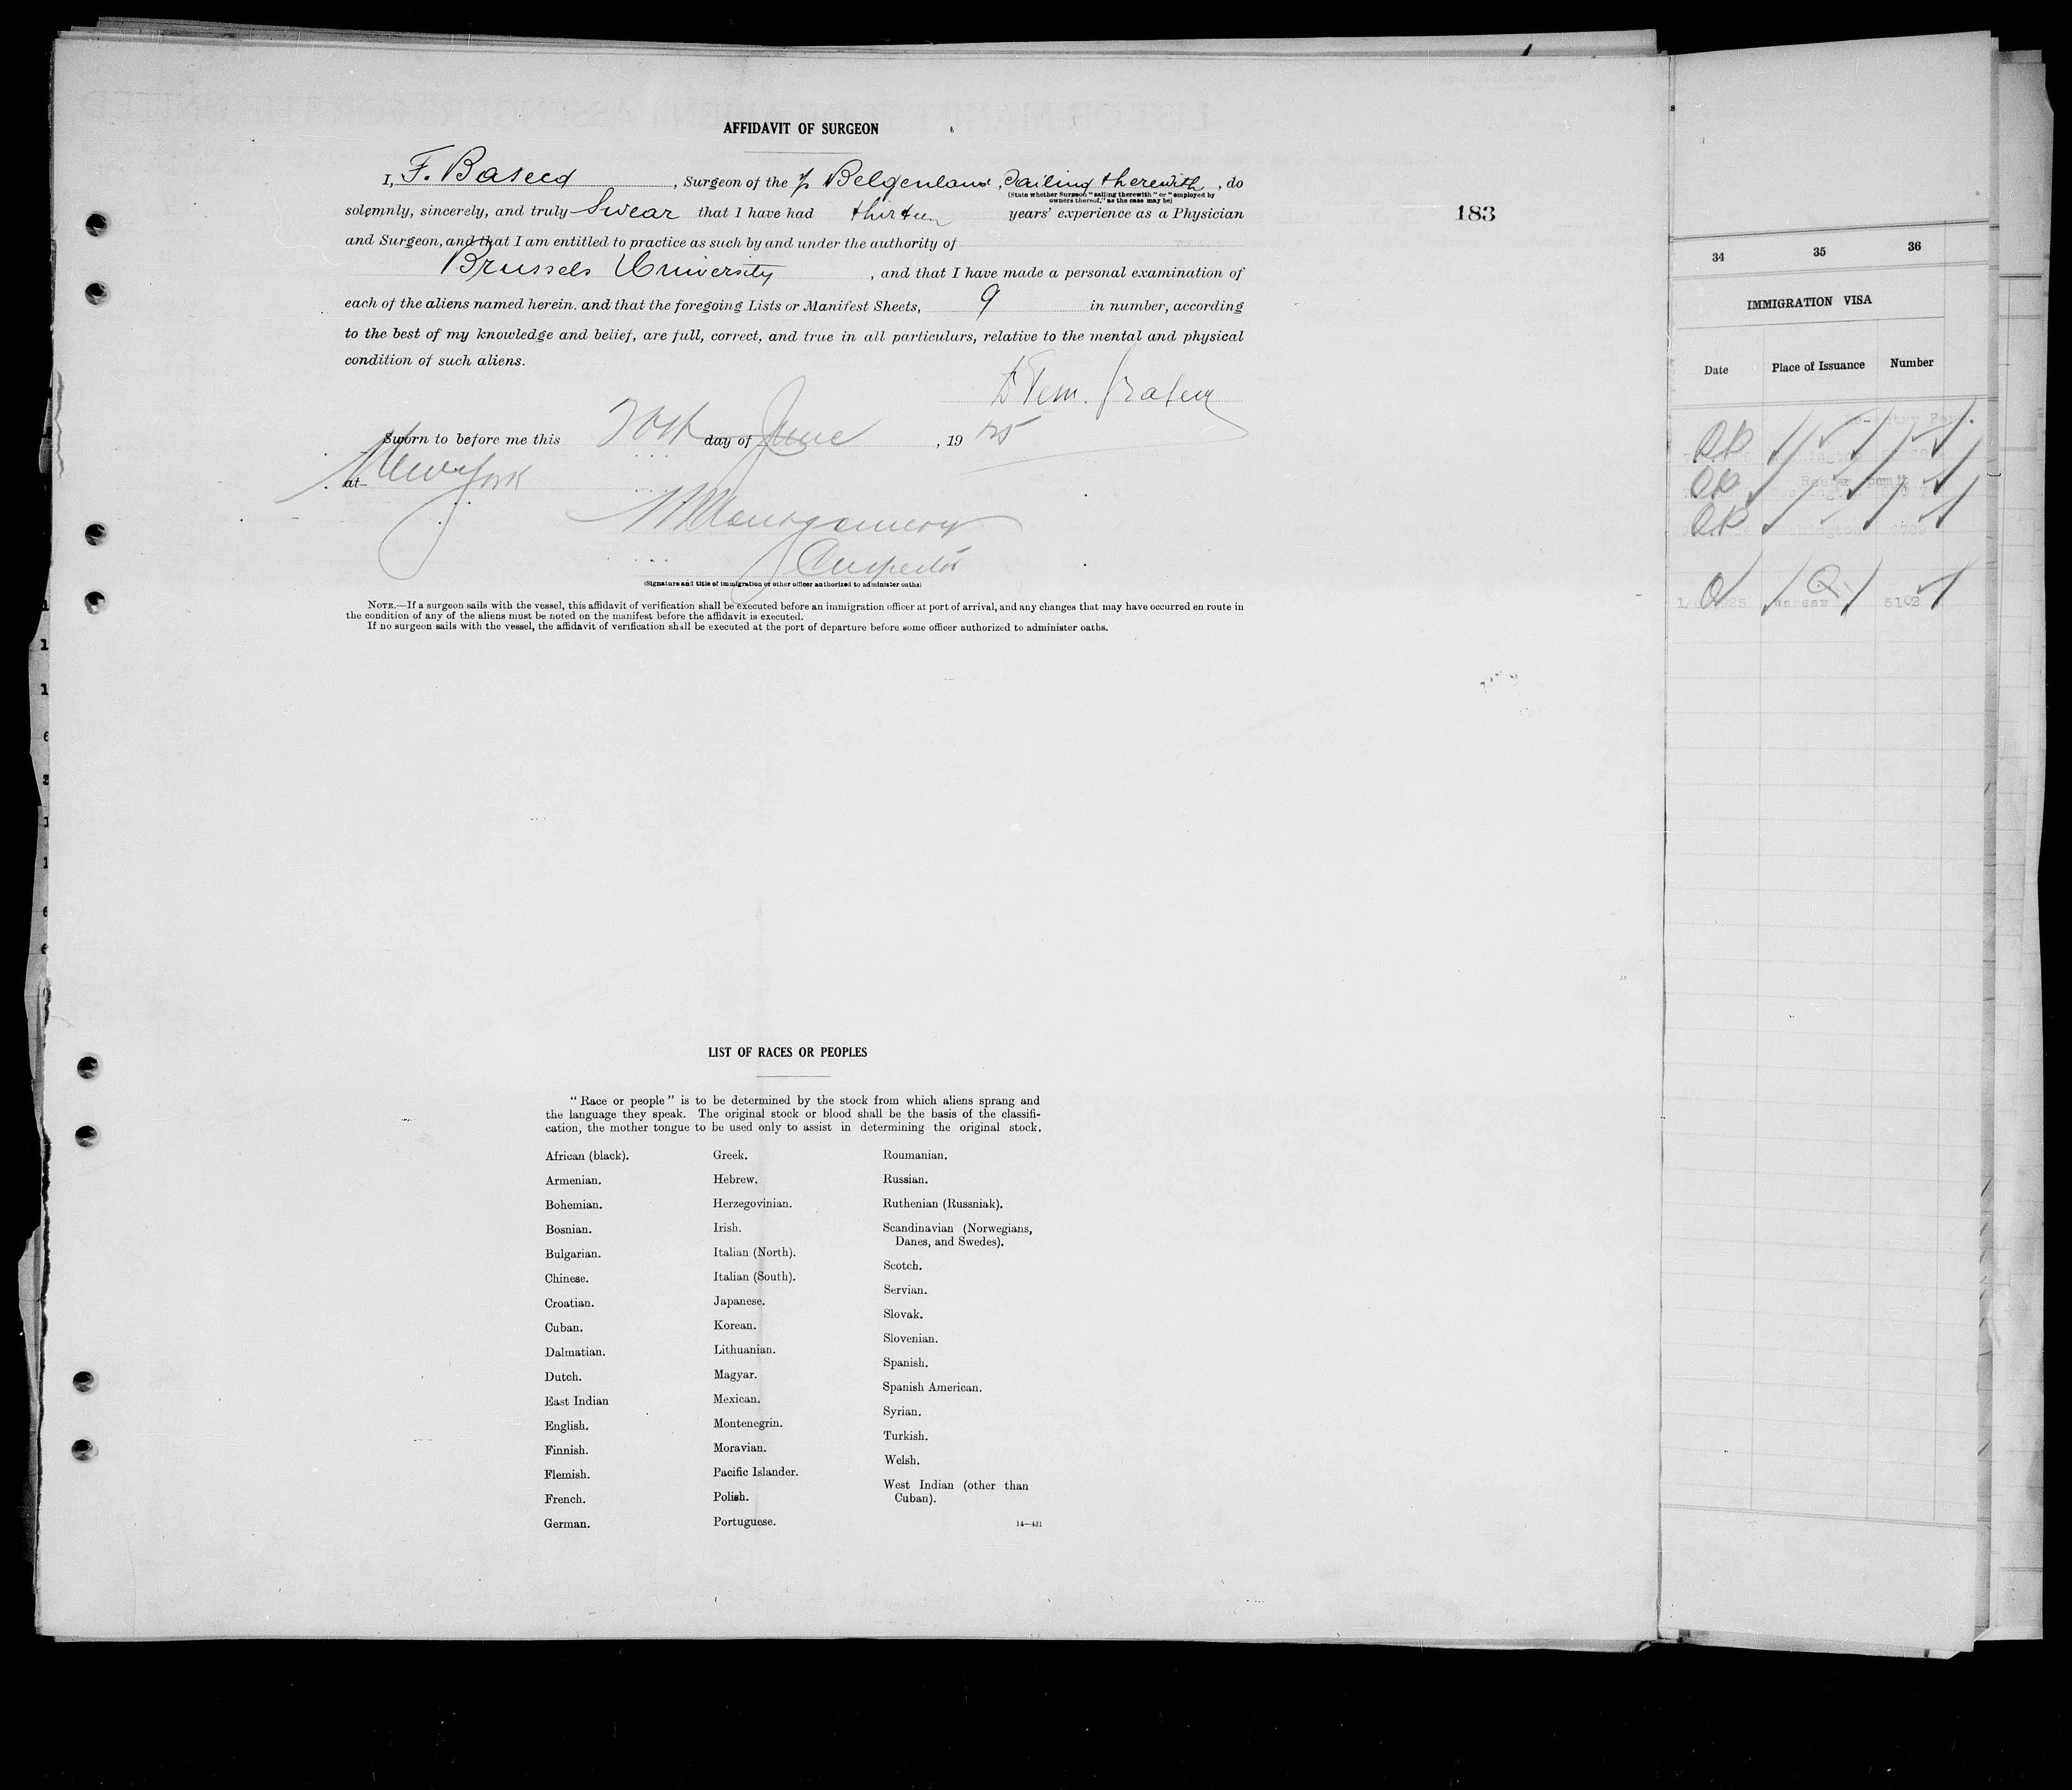 AFFIDAVIT OF SURGEON
I, F. Baseed, Surgeon of the Belgenland, Sailing therewith, do
(State whether Surgeon "sailing therewith" or "employed by
owners thereof," as the case may be)
solemnly, sincerely, and truly Swear that I have had thirteen years' experience as a Physician
and Surgeon, and that I am entitled to practice as such by and under the authority of
Brussels University, and that I have made a personal examination of
each of the aliens named herein. and that the foregoing Lists or Manifest Sheets, 9 in number, according
to the best of my knowledge and belief, are full, correct, and true in all particulars, relative to the mental and physical
condition of such aliens.
Sworn to before me this day of June, 1925
at New York
Montgomery
Inspector
(Signature and title of immigration or other officer authorized to administer oaths)
NOTE.—If a surgeon sails with the vessel, this affidavit of verification shall be executed before an immigration officer at port of arrival, and any changes that may have occurred en route in
the condition of any of the aliens must be noted on the manifest before the affidavit is executed.
If no surgeon sails with the vessel, the affidavit of verification shall be executed at the port of departure before some officer authorized to administer oaths.
183
LIST OF RACES OR PEOPLES
"Race or people" is to be determined by the stock from which aliens sprang and
the language they speak. The original stock or blood shall be the basis of the classifi-
cation, the mother tongue to be used only to assist in determining the original stock.
African (black).
Armenian.
Bohemian.
Bosnian.
Bulgarian.
Chinese.
Croatian.
Cuban.
Dalmatian.
Dutch.
East Indian
English.
Finnish.
Flemish.
French.
German.
Greek.
Hebrew.
Herzegovinian.
Irish.
Italian (North).
Italian (South).
Japanese.
Korean.
Lithuanian.
Magyar.
Mexican.
Montenegrin.
Moravian.
Pacific Islander.
Polish.
Portuguese.
Roumanian.
Russian.
Ruthenian (Russniak).
Scandinavian (Norwegians,
Danes, and Swedes).
Scotch.
Servian.
Slovak.
Slovenian.
Spanish.
Spanish American.
Syrian.
Turkish.
Welsh.
West Indian (other than
Cuban).
14—431
34 35 36
IMMIGRATION VISA
Date Place of Issuance Number
Warsaw 5102